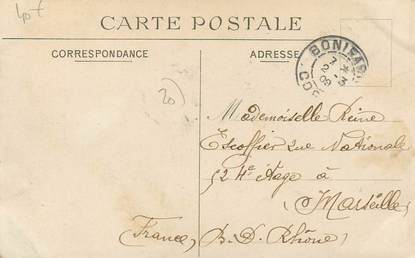 40f
CARTE POSTALE
CORRESPONDANCE
ADRESSE
BONIFA
7 *
2 - 3
09
CORSE
20)
Mademoiselle Reine
Escoffier rue Nationale
52 4e étage à
Marseille
France, B. D. Rhône